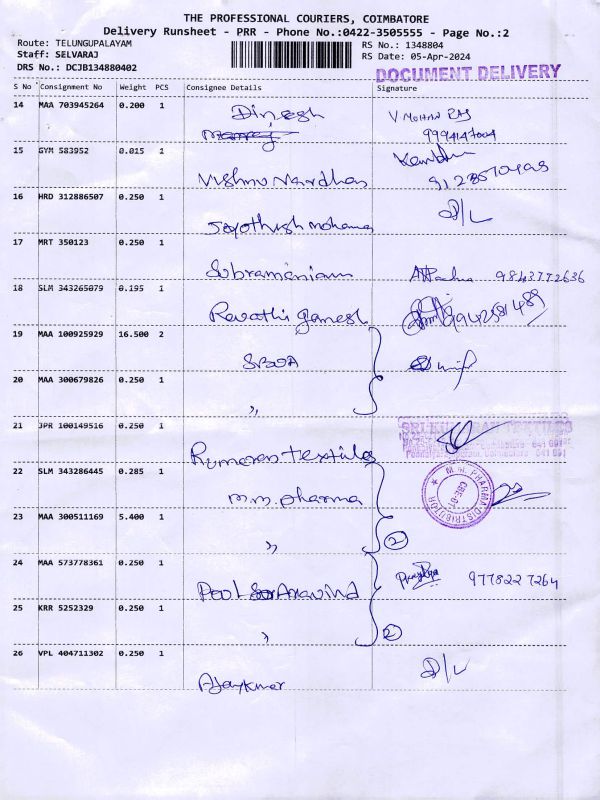 THE PROFESSIONAL COURIERS, COIMBATORE
Delivery Runsheet - PRR - Phone No.:0422-3505555 - Page No.:2
Route: TELUNGUPALAYAM
Staff: SELVARAJ
DRS No.: DCJB134880402
RS No.: 1348804
RS Date: 05-Apr-2024
DOCUMENT DELIVERY
S No Consignment No Weight PCS Consignee Details Signature
14 MAA 703945264 0.200 1 Dinesh V MOHAN RAJ
9994147004
15 GYM 583952 0.015 1
Vishnu Vardhan
16 HRD 312886507 0.250 1 D/L
Jayothish mohana
17 MRT 350123 0.250 1
Subramaniam 9843772636
18 SLM 343265079 0.195 1
Revathi Ganesh 9942581489
19 MAA 100925929 16.500 2
SBOA
20 MAA 300679826 0.250 1
"
21 JPR 100149516 0.250 1
Kumaran textiles
22 SLM 343286445 0.285 1
m.m. pharma
M.M. PHARMA DISTRIBUTOR
CBE-01
23 MAA 300511169 5.400 1
" 2
24 MAA 573778361 0.250 1
Aravind 9778227264
25 KRR 5252329 0.250 1
" 2
26 VPL 404711302 0.250 1 D/L
Ajaykumar